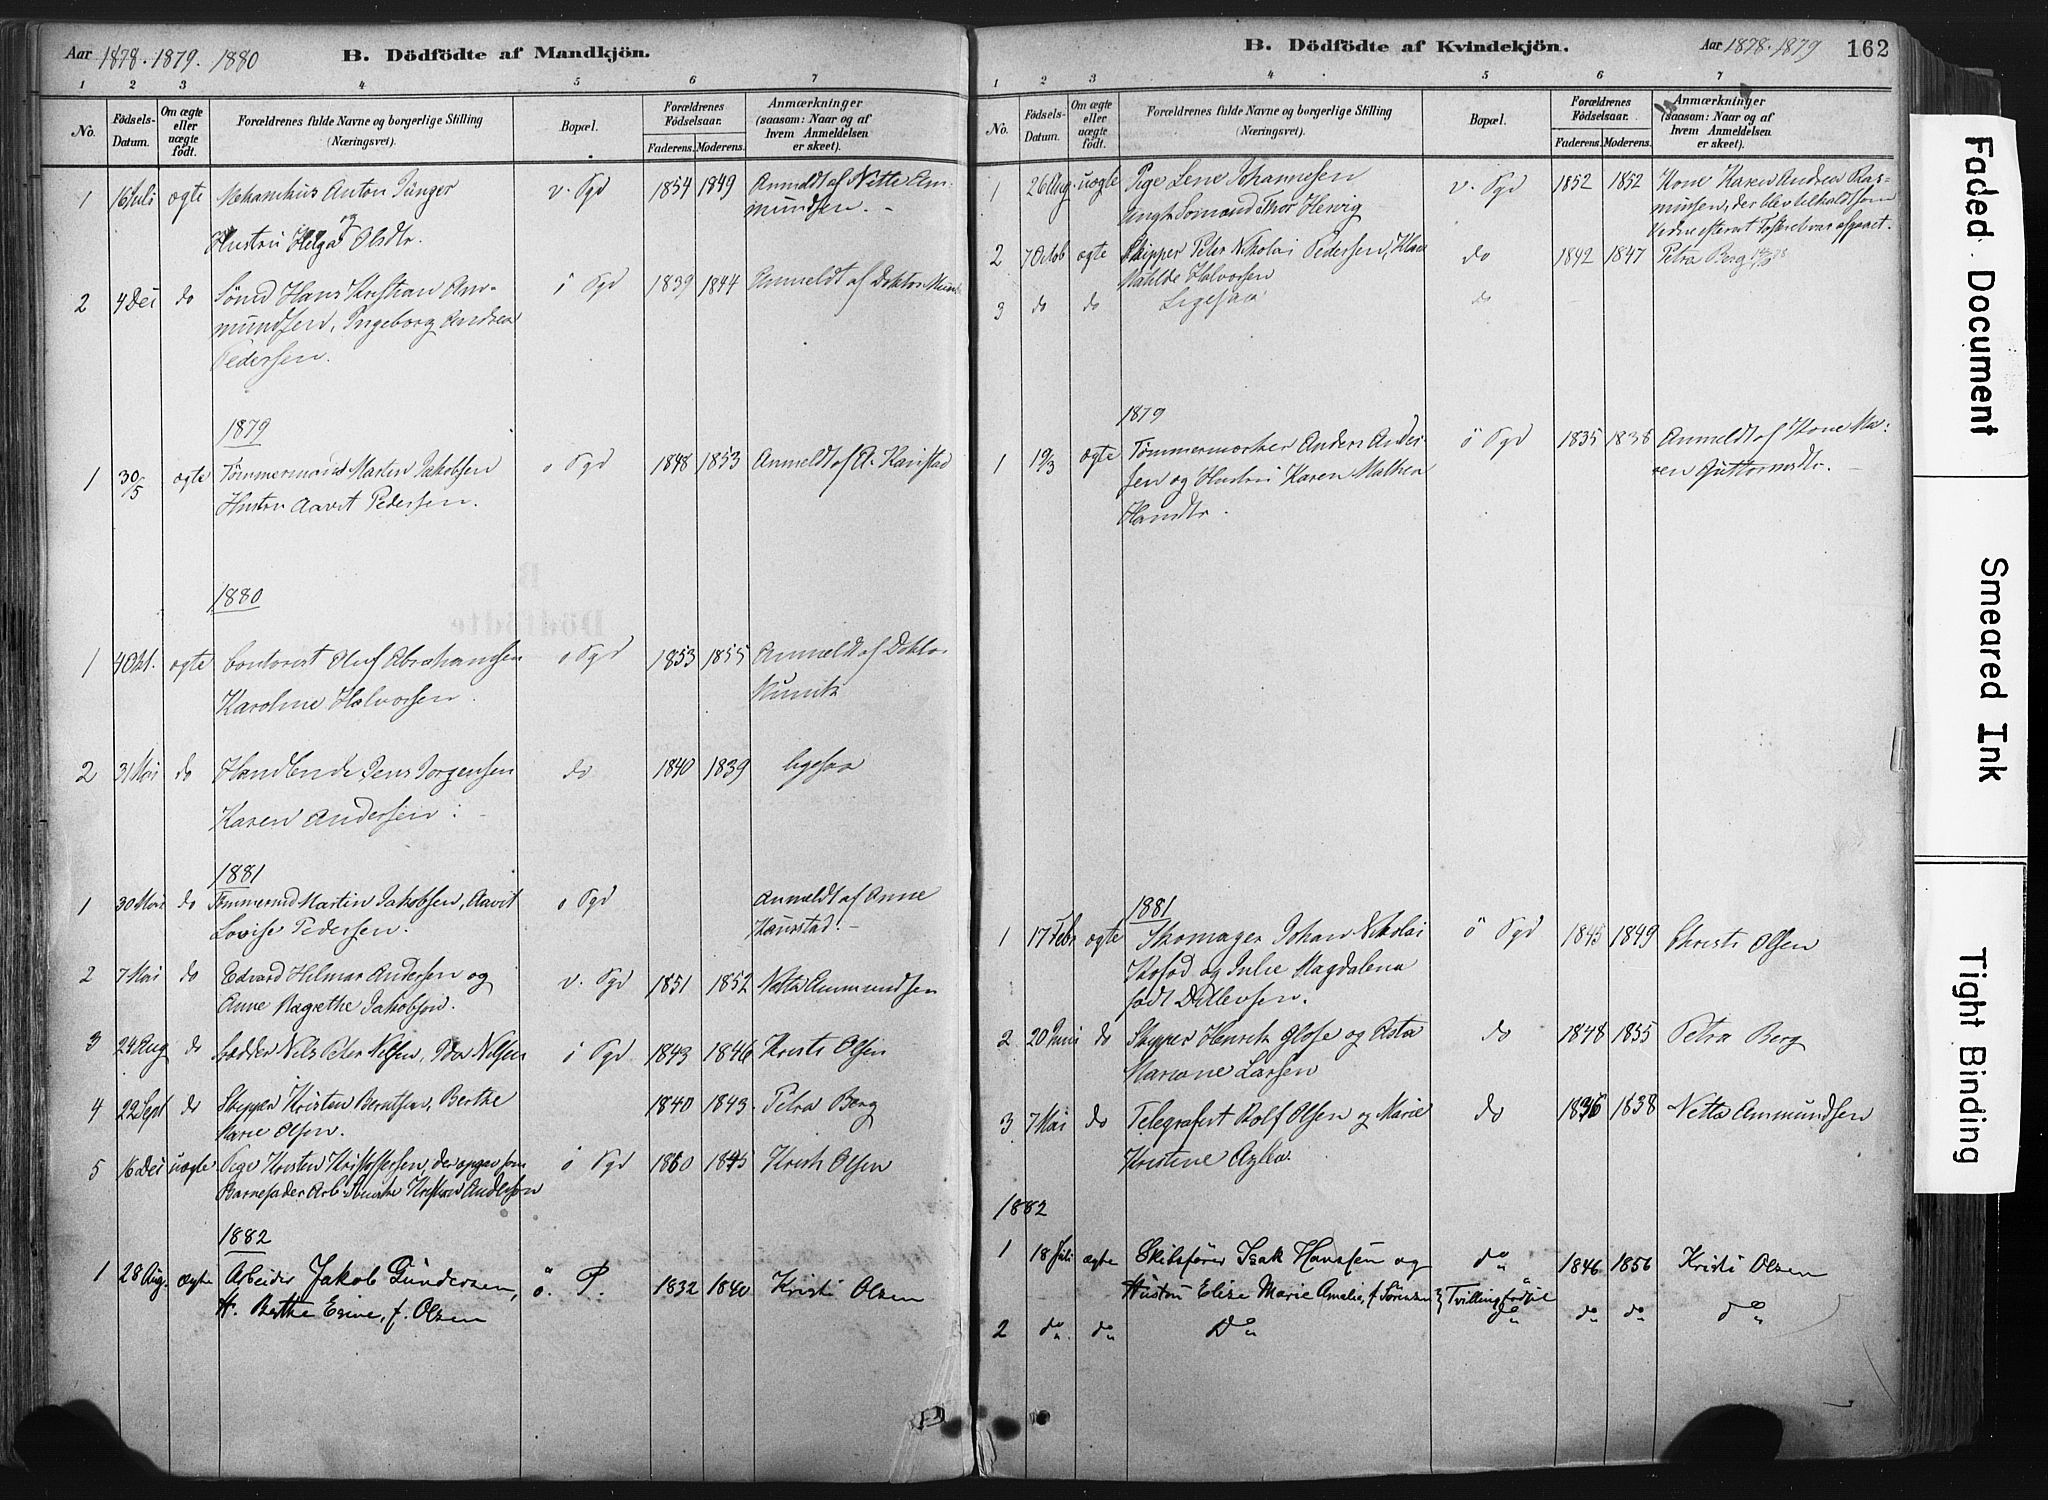 Aar 1878. 1879. 1880
B. Dödfödte af Mandkjön.
1 2 3 4 5 6 7
No.
Födsels-Datum.
Om ægte eller uægte födt.
Forældrenes fulde Navne og borgerlige Stilling
(Næringsvei).
Bopæl.
Forældrenes Födselsaar.
Faderens. Moderens.
Anmærkninger
(saasom: Naar og af
hvem Anmeldelsen
er skeet).
1 16 Juli ægte Anton v. Pgd 1854 1849 Anmeldt af Nette Am-
mundsen. -
Hustru Helga Olsdtr.
2 4 Dei do Hans Kristian Am- i Pgd 1839 1844 Anmeldt af Doktor
mundsen, Ingeborg Andrea
Pedersen.
1879
1 30/5 ægte Tømmermand Martin Jakobsen o Pgd 1848 1853 Anmeldt af A.
Hustru Aavet Pedersen.
1880
1 4 Okt. ægte Contorist Oluf Abrahamsen o Pgd 1853 1855 Anmeldt af Doktor
Karoline Halvorsen Munck
2 31 Mai do Handlende Jens Jørgensen do 1840 1839 ligesaa
Karen Andersen
1881
1 30 Mai do Martin Jakobsen, Aavet o Pgd Anmeldt af Anne
Lovise Pedersen. Kaurstad. -
2 7 Mai do Edvard Hilmar Andersen og v. Pgd 1851 1852 Netta Ammundsen
Anne Magrethe Jakobsen.
3 24 Aug do Nils Peter Nilsen, Nilsen i Pgd 1843 1846 Kristi Olsen
4 22 Sept do Skipper Kristen Berntsen, Berthe 1840 1843 Petra Berg
Marie Olsen.
5 16 Dei uægte Pige Kirsten Kristoffersen, der opgav som o Pgd 1860 1845 Kristi Olsen
Barnefader Arb. Kristian Anderson
1882
1 28 Aug. ægte Arbeider Jakob Gundersen, ö. P. 1832 1840 Kristi Olsen
H. Berthe Esine, f. Olsen
B. Dödfödte af Kvindekjön.
Aar 1878. 1879 162
1 2 3 4 5 6 7
No.
Födsels-Datum.
Om ægte eller uægte födt.
Forældrenes fulde Navne og borgerlige Stilling
(Næringsvei).
Bopæl.
Forældrenes Födselsaar.
Faderens. Moderens.
Anmærkninger
(saasom: Naar og af
hvem Anmeldelsen
er skeet).
1 26 Aug. uægte Pige Lene Johannesen v. Pgd 1852 1852 Kone Karen Andrea Ras-
Ungk. Sømand Thor Herwig mussen, der blev tilkaldt som
2 7 Octob ægte Skipper Peter Nikolai Pedersen, Klara do 1842 1847 Petra Berg
Matilde Halvorsen
3 do do Ligesaa do
1879
1 19/3 ægte Tømmermester Anders Ander- ö Pgd 1835 1836 Anmeldt af Kone Ma-
sen og Hustru Karen Mathea ren Guttormsdtr.
Hansdtr.
1881
1 17 Febr ægte Skomager Johan Nikolai ö Pgd 1845 1849 Christi Olsen
og Julie Magdalena
født Ditlevsen.
2 20 Juni do Skipper Henrik Glose og Asta do 1848 1855 Petra Berg
Mariane Larsen
3 7 Mai do Telegrafist Rolf Olsen og Marie do 1836 1838 Netta Ammundsen
Kristine
1882
1 18 Juli ægte Skibsfører Isak Hanssen og do 1846 1856 Kristi Olsen
Hustru Elise Marie Amelie, f. Sørensen } Tvillingfødsel
2 do do Do do do do do
Faded Document
Smeared Ink
Tight Binding